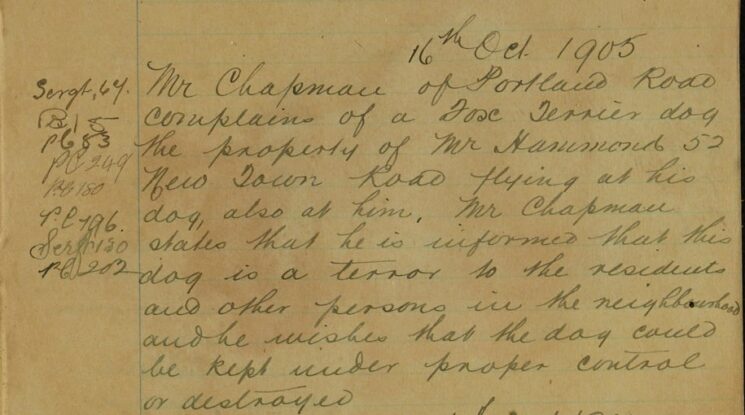 16th Oct 1905
Sergt, 64.
PC 83
PC 249
PC 180
PC 196.
Sergt 130
PC 202
Mr Chapman of Portland Road
complains of a Fox Terrier dog
the property of Mr Hammond 52
New Town Road flying at his
dog, also at him. Mr Chapman
states that he is informed that this
dog is a terror to the residents
and other persons in the neighbourhood
and he wishes that the dog could
be kept under proper control
or destroyed